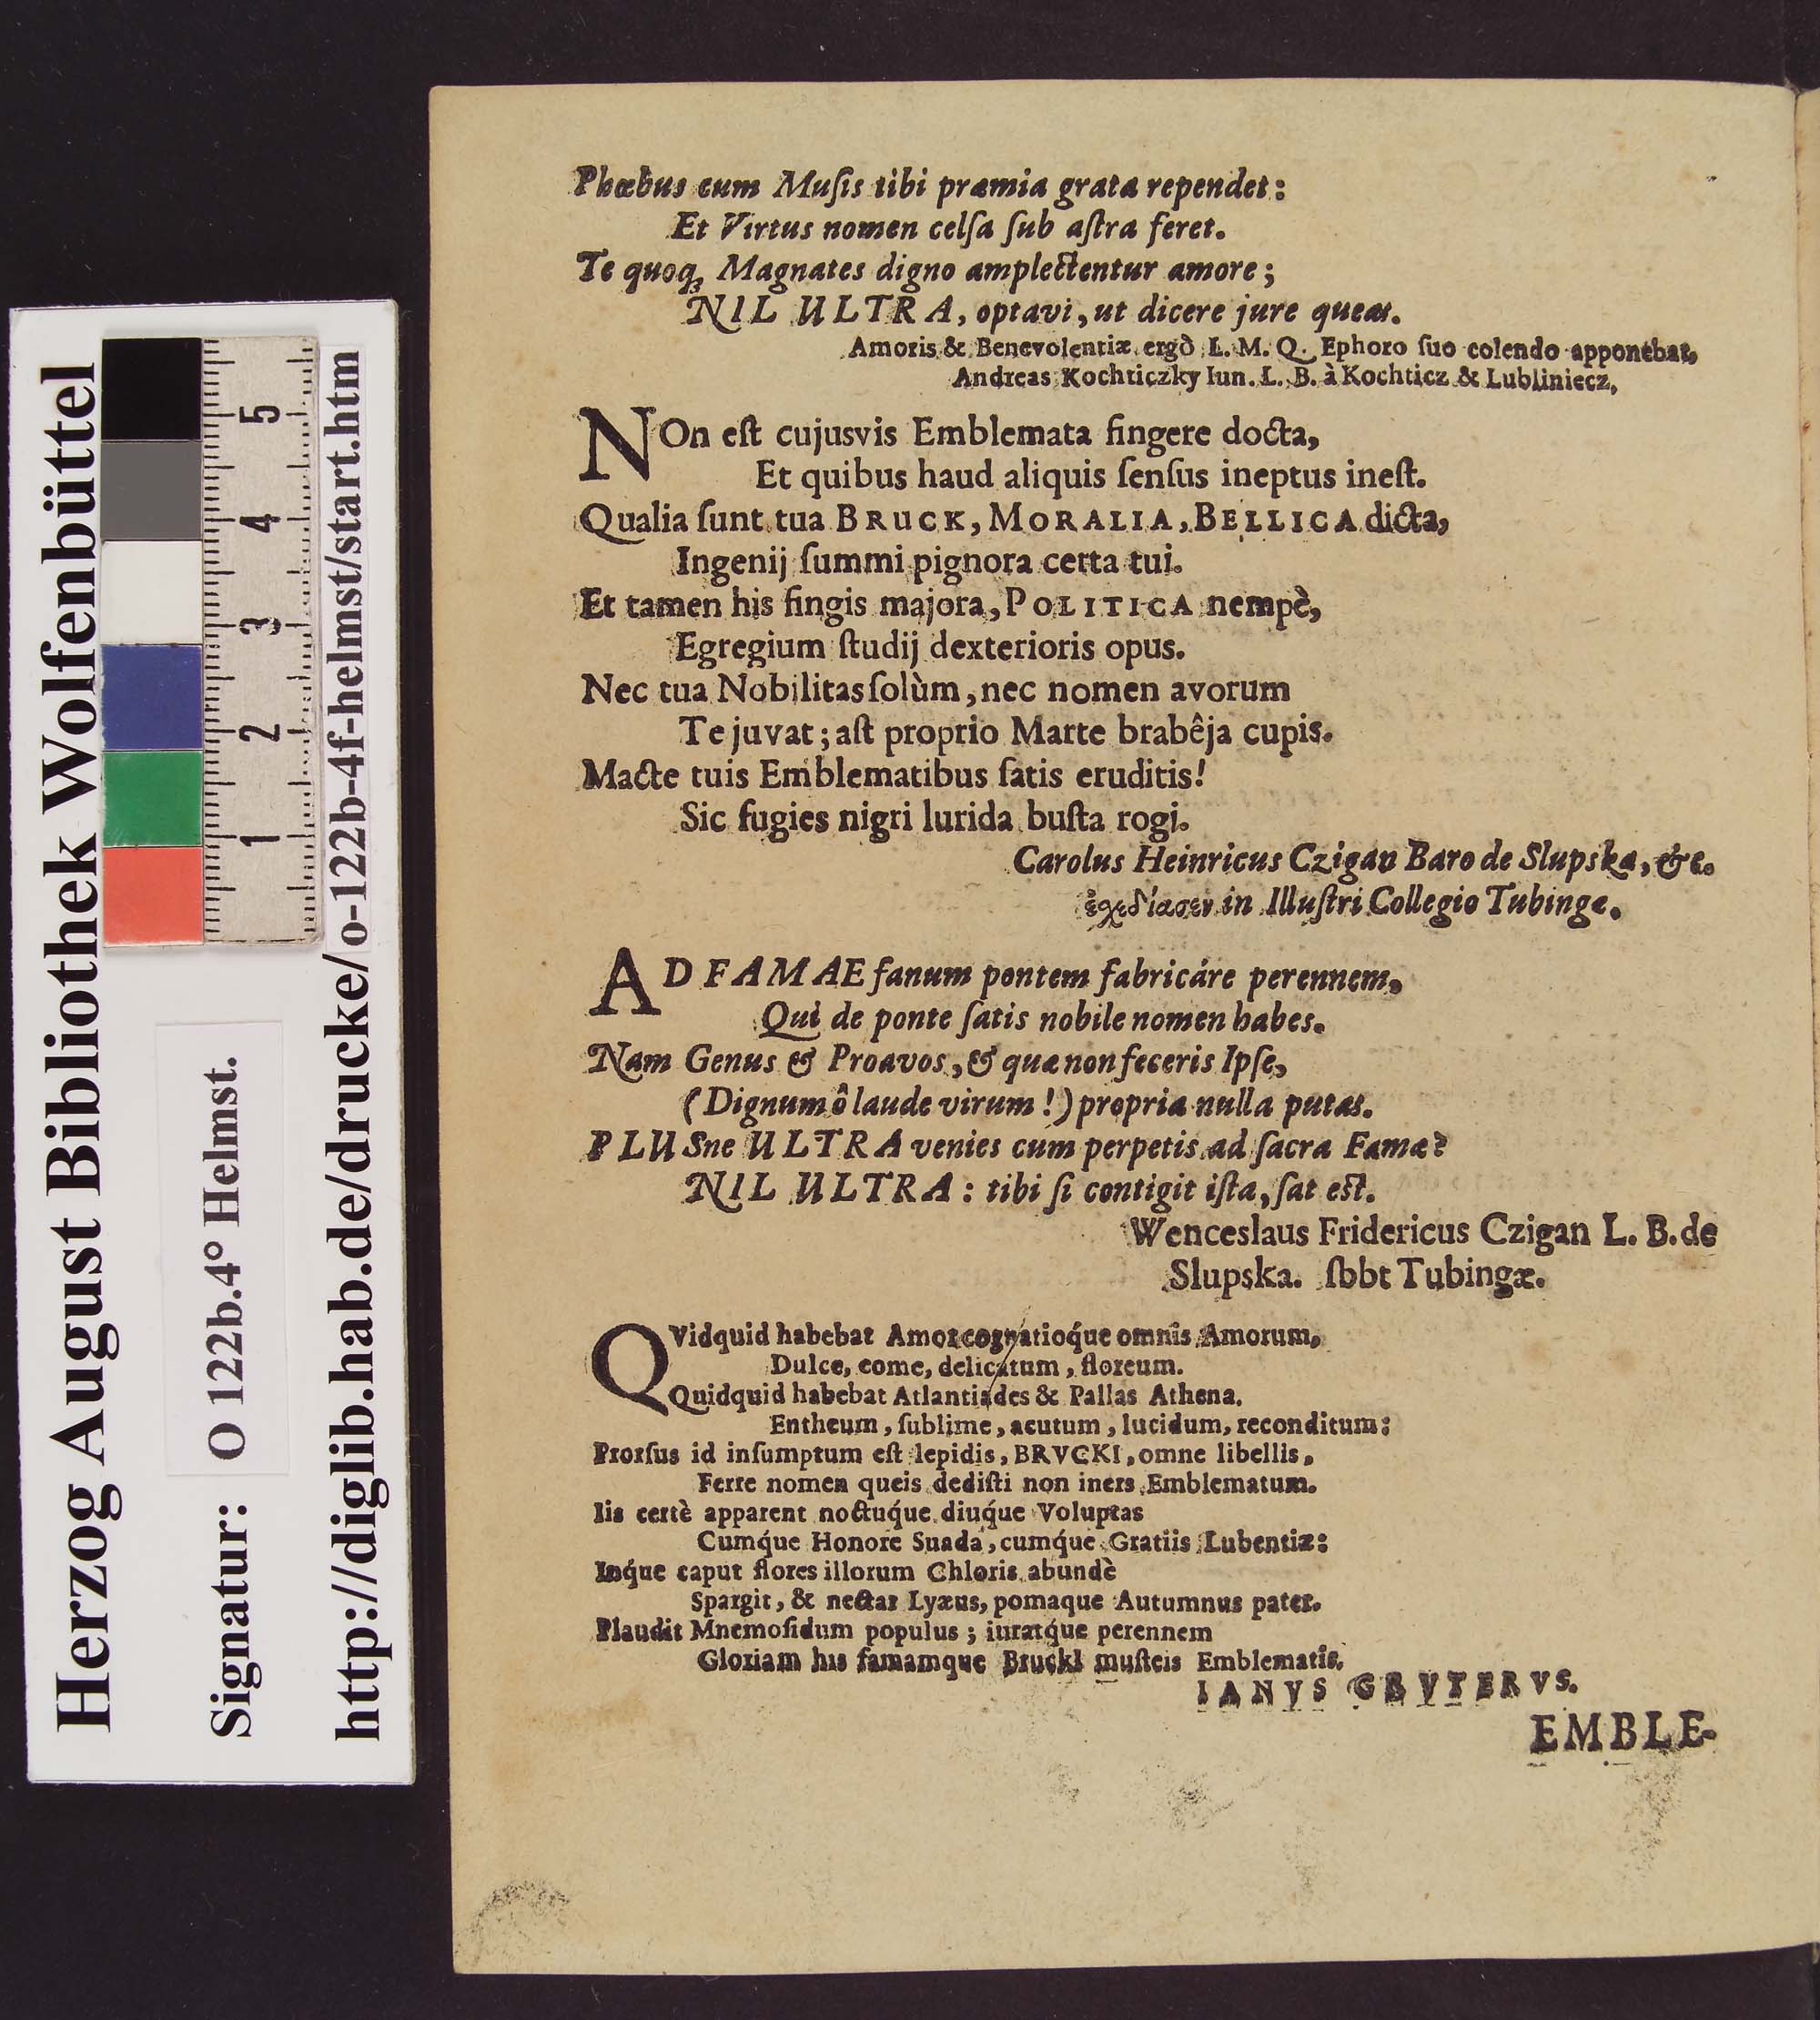 Phœbus cum Muſis tibi præmia grata rependet:
Et Virtus nomen celſa ſub aſtra feret.
Te quoq́; Magnates digno amplectentur amore;
NIL ULTRA, optavi, ut dicere jure queas.
Amoris & Benevolentiæ ergò L. M. Q. Ephoro ſuo colendo apponebat,
Andreas Kochticzky Iun. L. B. à Kochticz & Lubliniecz,
NOn eſt cujusvis Emblemata fingere docta,
Et quibus haud aliquis ſenſus ineptus ineſt.
Qualia ſunt tua BRUCK, MORALIA, BELLICA dicta,
Ingenij ſummi pignora certa tui.
Et tamen his fingis majora, POLITICA nempè,
Egregium ſtudij dexterioris opus.
Nec tua Nobilitas ſolùm, nec nomen avorum
Te juvat; aſt proprio Marte brabêja cupis.
Macte tuis Emblematibus ſatis eruditis!
Sic fugies nigri lurida buſta rogi.
Carolus Heinricus Czigan Baro de Slupska, &c.
ἐχεδίασεν in Illuſtri Collegio Tubingæ.
AD FAMAE fanum pontem fabricáre perennem,
Qui de ponte ſatis nobile nomen habes.
Nam Genus & Proavos, & quæ non feceris Ipſe,
(Dignum ô laude virum!) propria nulla putas.
PLUSne ULTRA venies cum perpetis ad ſacra Famæ?
NIL ULTRA: tibi ſi contigit iſta, ſat eſt.
Wenceslaus Fridericus Czigan L. B. de
Slupska. ſbbt Tubingæ.
QVidquid habebat Amor cognatioq́ue omnîs Amorum,
Dulce, come, delicatum, floreum.
Quidquid habebat Atlantiades & Pallas Athena.
Entheum, ſublime, acutum, lucidum, reconditum:
Prorſus id inſumptum eſt lepidis, BRVCKI, omne libellis,
Ferre nomen queis dediſti non iners Emblematum.
Iis certè apparent noctuq́ue diuq́ue Voluptas
Cumq́ue Honore Suada, cumq́ue Gratiis Lubentiæ:
Inq́ue caput flores illorum Chloris abundè
Spargit, & nectar Lyæus, pomaque Autumnus pater.
Plaudit Mnemoſidum populus; iuratq́ue perennem
Gloriam his famamque Brucki muſteis Emblematîs.
IANVS GRVTERVS.
EMBLE-
Herzog August Bibliothek Wolfenbüttel
Signatur: O 122b.4° Helmst.
http://diglib.hab.de/drucke/o-122b-4f-helmst/start.htm
5
4
3
2
1